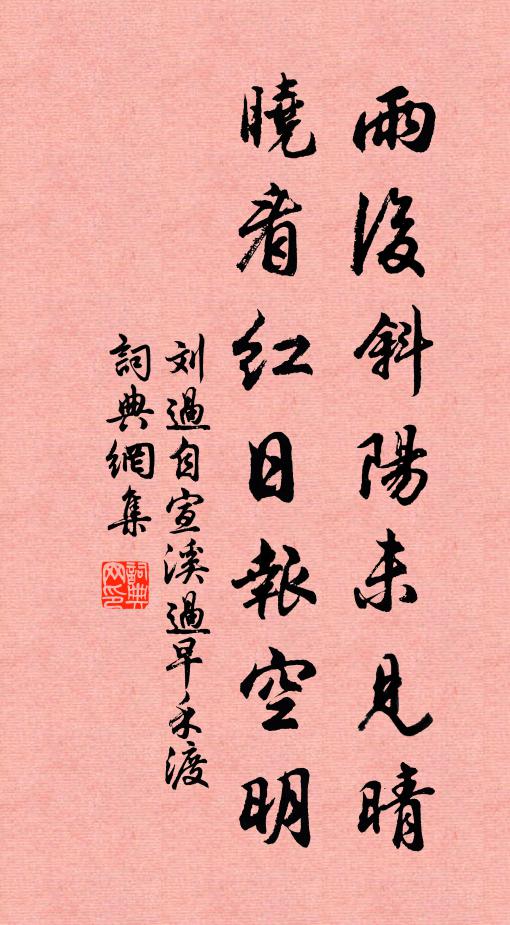 雨後斜陽未見晴
曉看紅日報空明
刘過自宣溪過早禾渡
詞典網集
詞典網印